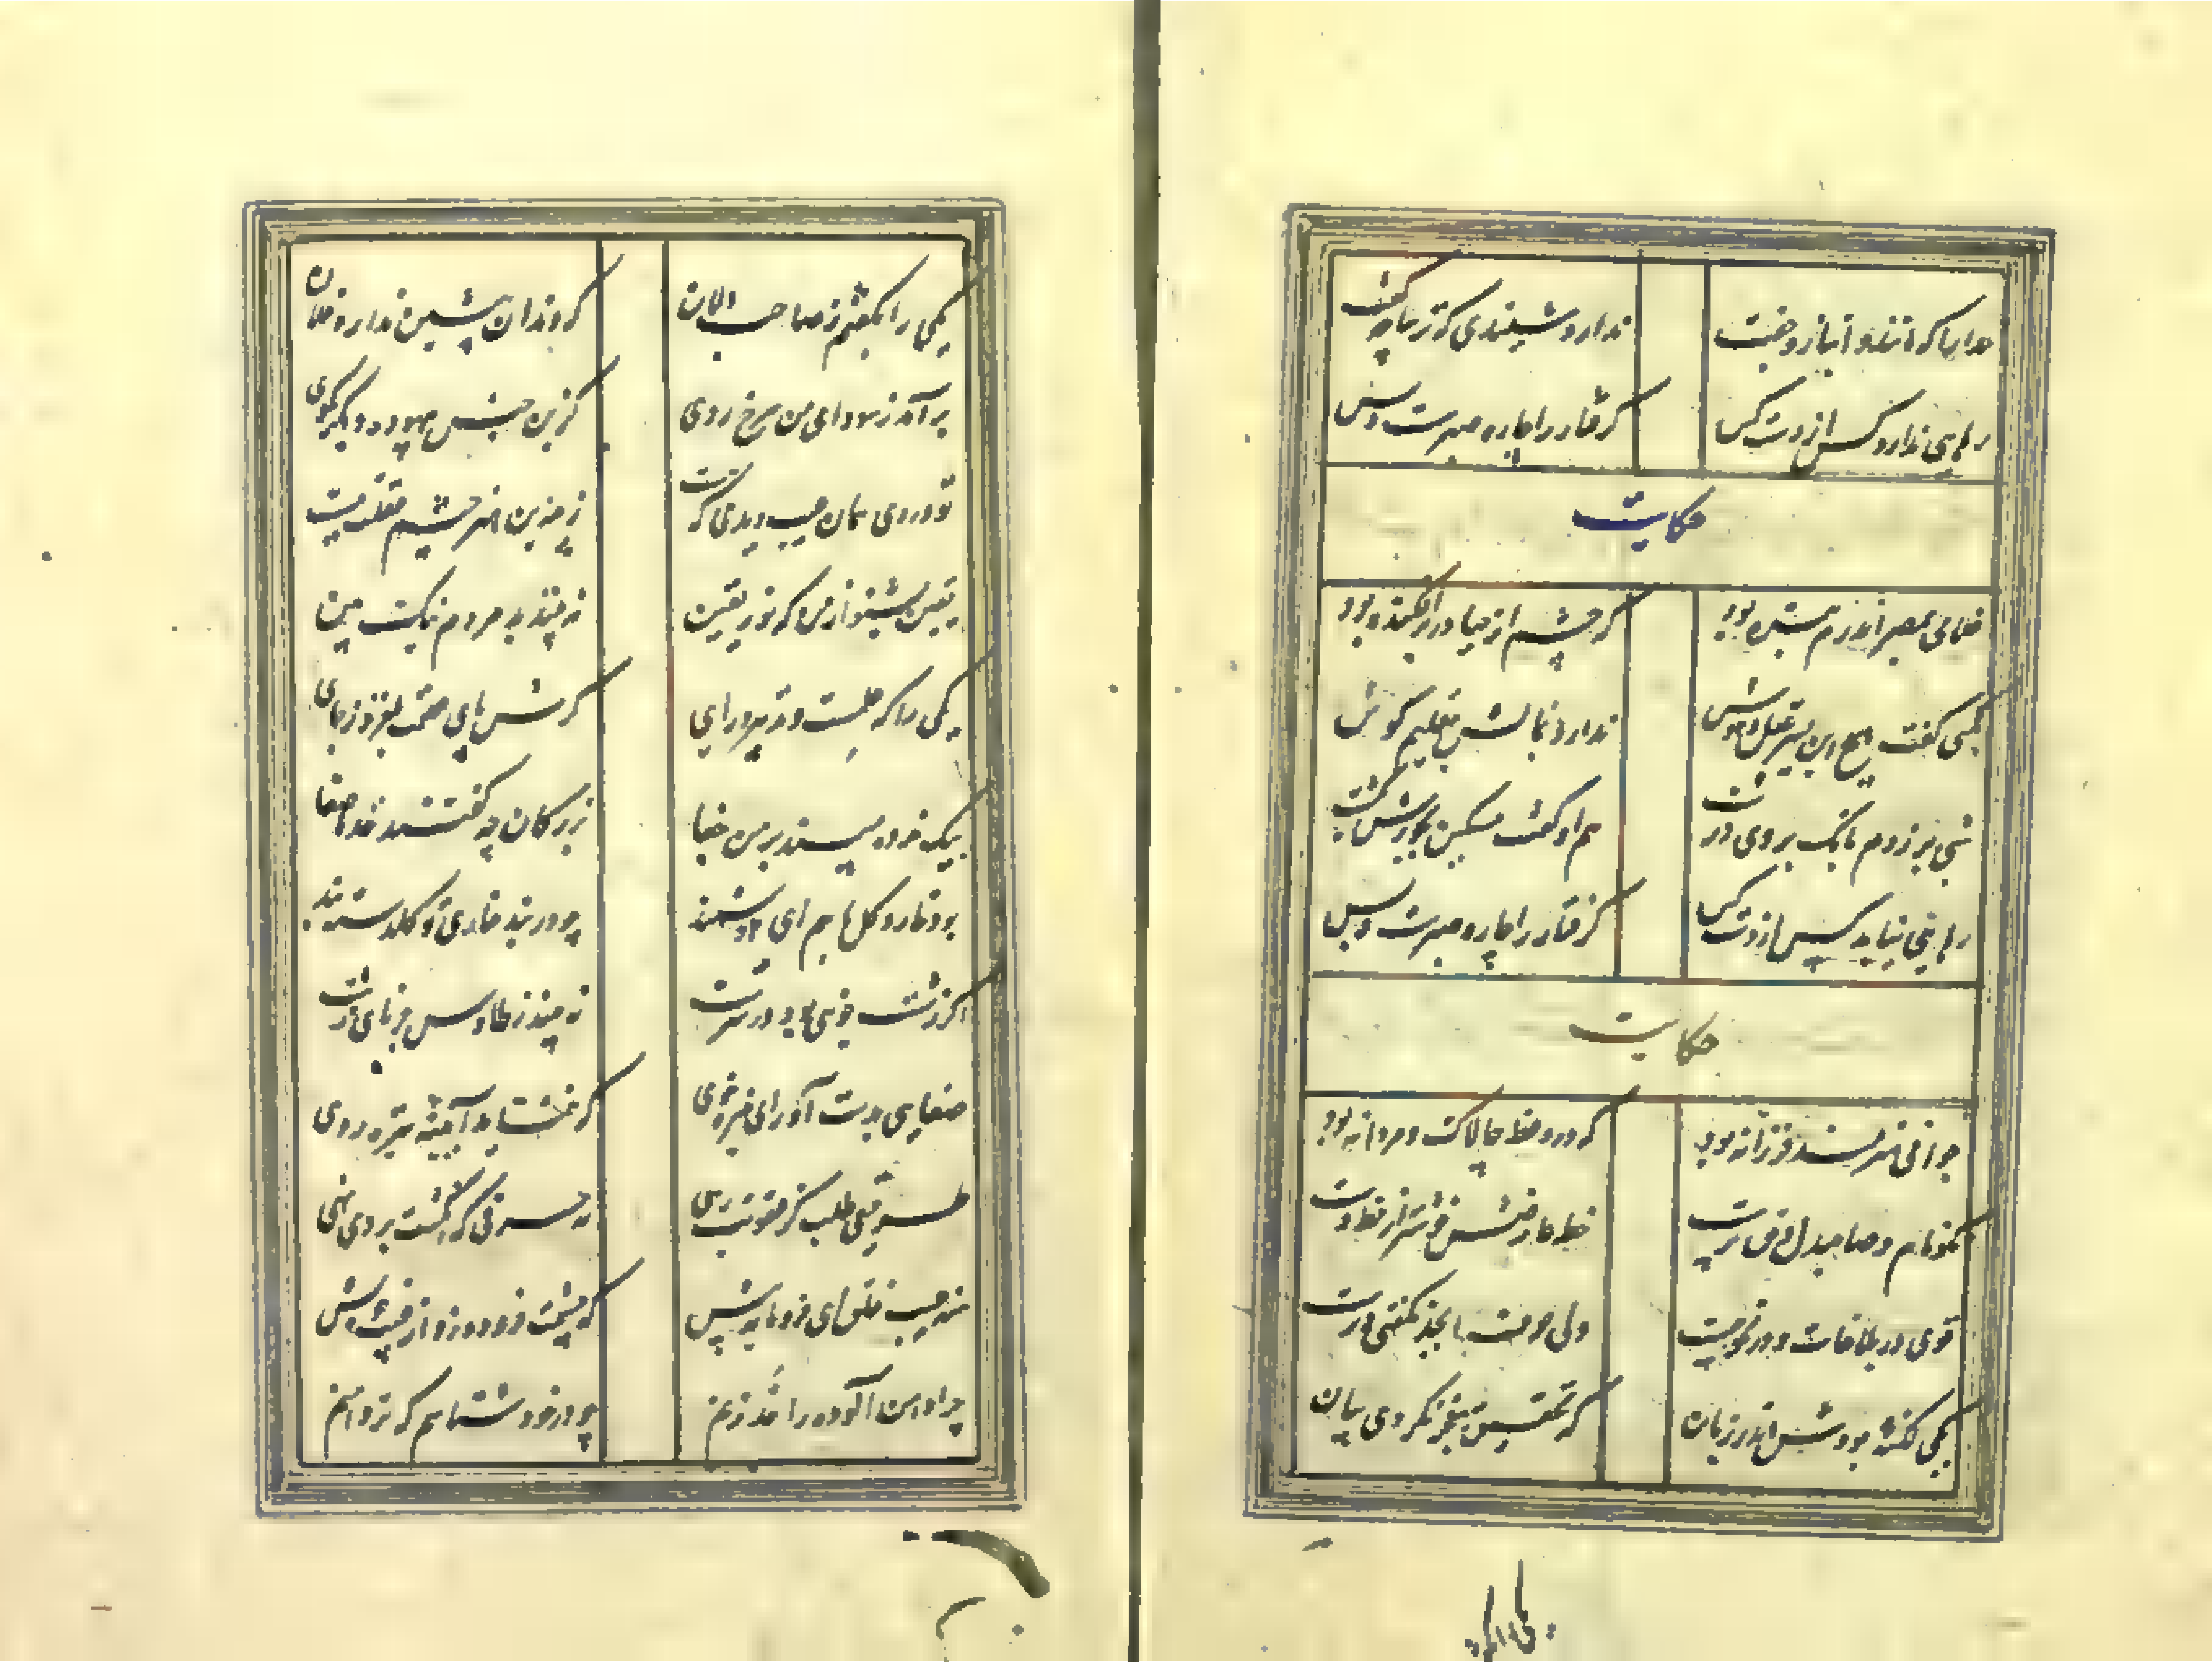 خدایا که مانند و انباز و جفت ندارد شنیدی که ترسا چه گفت
رهایی ندارد کس از دست کس گرفتار را چاره صبرست و بس
حکایت
غلامی بمصر اندرم بنده بود که چشم از حیا در بر افکنده بود
کسی گفت هیچ این پسر عقل و هوش ندارد بمالش بتعلیم گوش
شبی بر زدم بانگ بروی درشت هم او گفت مسکین بجورش بکشت
رهایی نیابد کس از دست کس گرفتار را چاره صبرست و بس
حکایت
جوانی هنرمند فرزانه بود که در وعظ چالاک و مردانه بود
نکونام و صاحبدل و حق پرست خط عارضش خوشتر از خط دست
قوی در بلاغات و در نحو چست ولی حرف ابجد نگفتی درست
یکی لکنتی بودش اندر زبان که تحقیق معجم نکردی بیان
یکی را بگفتم ز صاحب دلان که دندان پیشین ندارد فلان
برآمد ز سودای من سرخ روی کزین جنس بیهوده دیگر مگوی
تو در وی همان عیب دیدی که هست ز چندین هنر چشم عقلت ببست
یقین بشنو از من که روز یقین نه بینند بد مردم نیک بین
یکی را که علمست و تدبیر و رای گرش پای عصمت بلغزد ز جای
بیک خرده مپسند بر من جفا بزرگان چه گفتند خذ ما صفا
بود خار و گل با هم ای هوشمند چو در بند خاری تو گلدسته بند
کرا زشت خویی بود در سرشت نه بیند ز طاوس جز پای زشت
صفایی بدست آور ای خیره روی که ننماید آیینه تیره روی
طریقی طلب کز عقوبت رهی نه حرفی که انگشت بر وی نهی
منه عیب خلق ای فرومایه پیش که چشمت فرو دوزد از عیب خویش
چرا دامن آلوده را حد زنم چو در خود شناسم که تردامنم